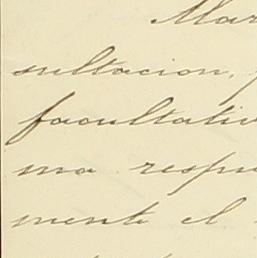 Mar
sultacion,
facultativ
ma respu
mente el